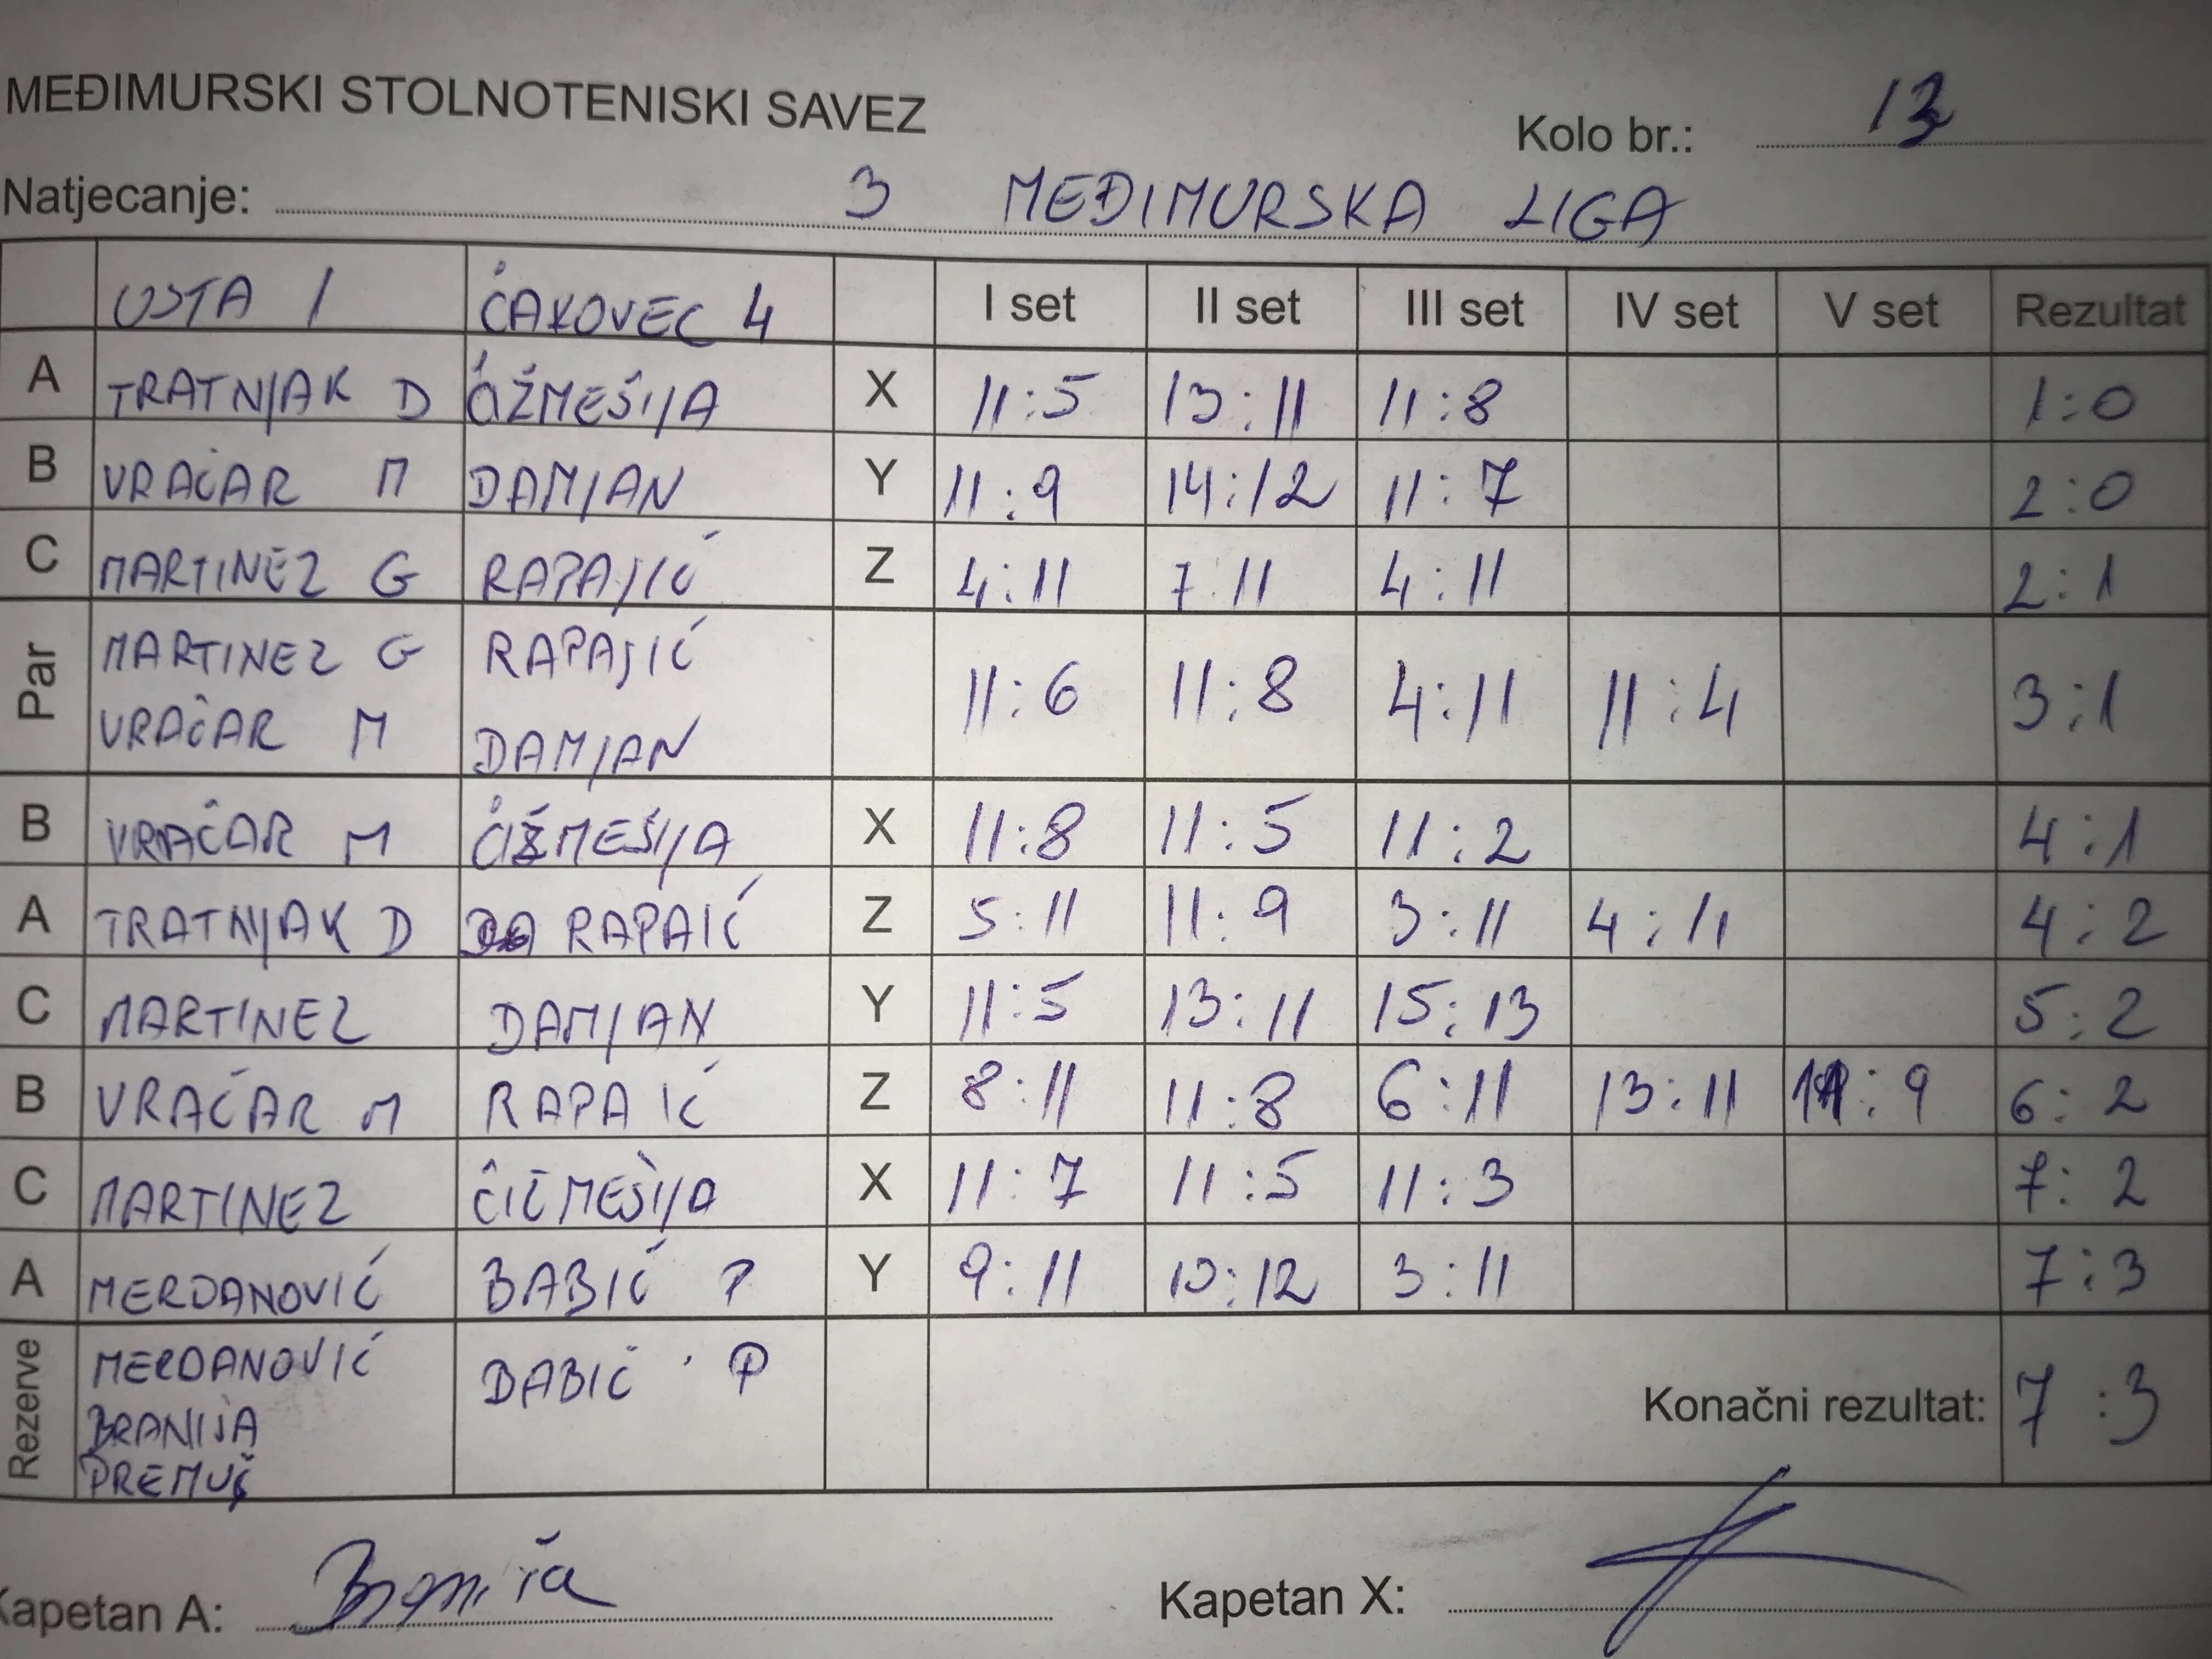 MEĐIMURSKI STOLNOTENISKI SAVEZ
Kolo br.: 13
Natjecanje: 3 MEĐIMURSKA LIGA
USTA 1 ČAKOVEC 4 I set II set III set IV set V set Rezultat
A TRATNJAK D ČIŽMEŠIJA X 11:5 13:11 11:8 1:0
B VRAČAR M DAMJAN Y 11:9 14:12 11:7 2:0
C MARTINEZ G RAPAJIĆ Z 4:11 7:11 4:11 2:1
Par MARTINEZ G RAPAJIĆ 11:6 11:8 4:11 11:4 3:1
VRAČAR M DAMJAN
B VRAČAR M ČIŽMEŠIJA X 11:8 11:5 11:2 4:1
A TRATNJAK D RAPAIĆ Z 5:11 11:9 3:11 4:11 4:2
C MARTINEZ DAMJAN Y 11:5 13:11 15:13 5:2
B VRAČAR M RAPAIĆ Z 8:11 11:8 6:11 13:11 11:9 6:2
C MARTINEZ ČIŽMEŠIJA X 11:7 11:5 11:3 7:2
A MERDANOVIĆ BABIĆ P Y 9:11 10:12 3:11 7:3
Rezerve MERDANOVIĆ BABIĆ P Konačni rezultat: 7:3
BRANIŠA
PREMUŠ
Kapetan A: Braniša Kapetan X: